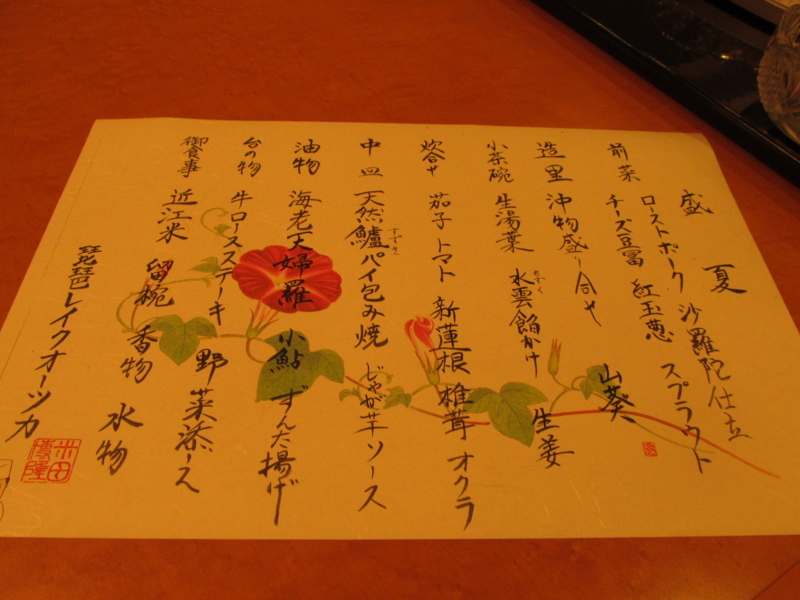 盛夏
前菜 ローストポーク 沙羅陀仕立
チーズ豆冨 紅玉葱 スプラウト
造里 沖物盛り合せ 山葵
小茶碗 生湯葉 水雲餡かけ 生姜
もずく
炊合せ 茄子 トマト 新蓮根 椎茸 オクラ
中皿 天然鱸パイ包み焼 じゃが芋ソース
すずき
油物 海老天婦羅 小鮎 ずんだ揚げ
台の物 牛ロースステーキ 野菜添え
御食事 近江米 留椀 香物
水物
琵琶レイクオーツカ